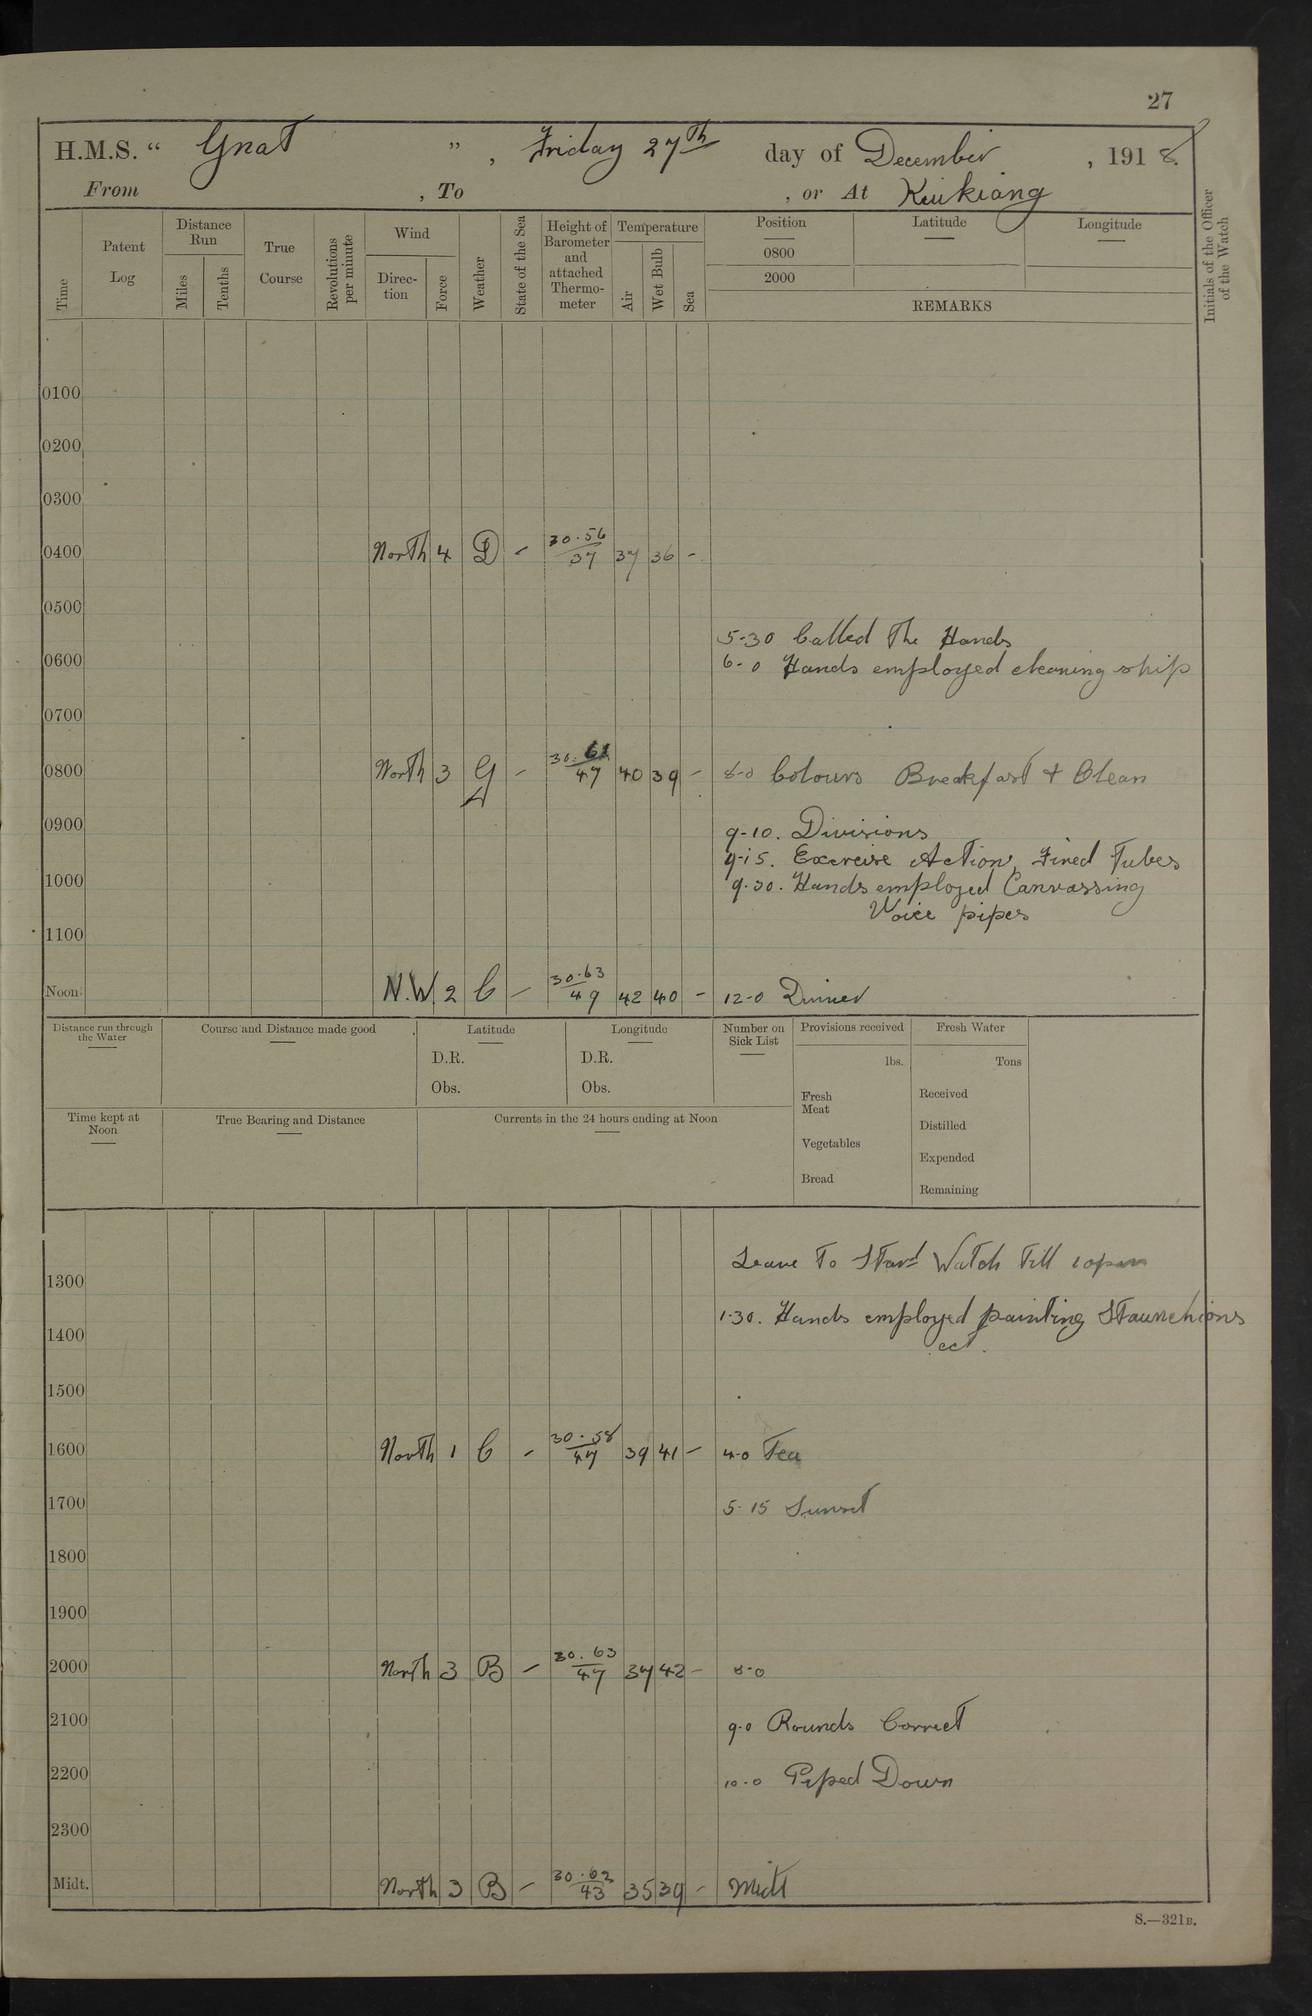 27
H.M.S. “ Gnat ” , Friday 27th day of December , 1918.
From , To , or At Kiukiang
Time
Patent Log
Distance Run
Miles
Tenths
True Course
Revolutions per minute
Wind
Direction
Force
Weather
State of the Sea
Height of Barometer and attached Thermometer
Temperature
Air
Wet Bulb
Sea
Position
0800
2000
Latitude
Longitude
REMARKS
Initials of the Officer of the Watch
0100
0200
0300
0400 North 4 D - 30.56/37 37 36 -
0500
5-30 Called The Hands
0600 6-0 Hands employed cleaning ship
0700
0800 North 3 G - 30.61/47 40 39 - 8-0 Colours Breakfast + Clean
0900 9-10. Divisions
9-15. Exercise Action, Fired Tubes
1000 9.30. Hands employed Canvassing
Voice pipes
1100
Noon N.W. 2 C - 30.63/49 42 40 - 12-0 Dinner
Distance run through the Water
Course and Distance made good
Latitude
D.R.
Obs.
Longitude
D.R.
Obs.
Number on Sick List
Provisions received
lbs.
Fresh Meat
Vegetables
Bread
Fresh Water
Tons
Received
Distilled
Expended
Remaining
Time kept at Noon
True Bearing and Distance
Currents in the 24 hours ending at Noon
Leave To Stard Watch Till 10pm
1300
1-30. Hands employed painting Staunchions
1400 ect.
1500
1600 North 1 C - 30.58/47 39 41 - 4-0 Tea
1700 5-15 Sunset
1800
1900
2000 North 3 B - 30.63/47 37 42 - 8-0
2100 9-0 Rounds Correct
2200 10-0 Piped Down
2300
Midt. North 3 B - 30.62/43 35 39 - Midt
S.—321B.